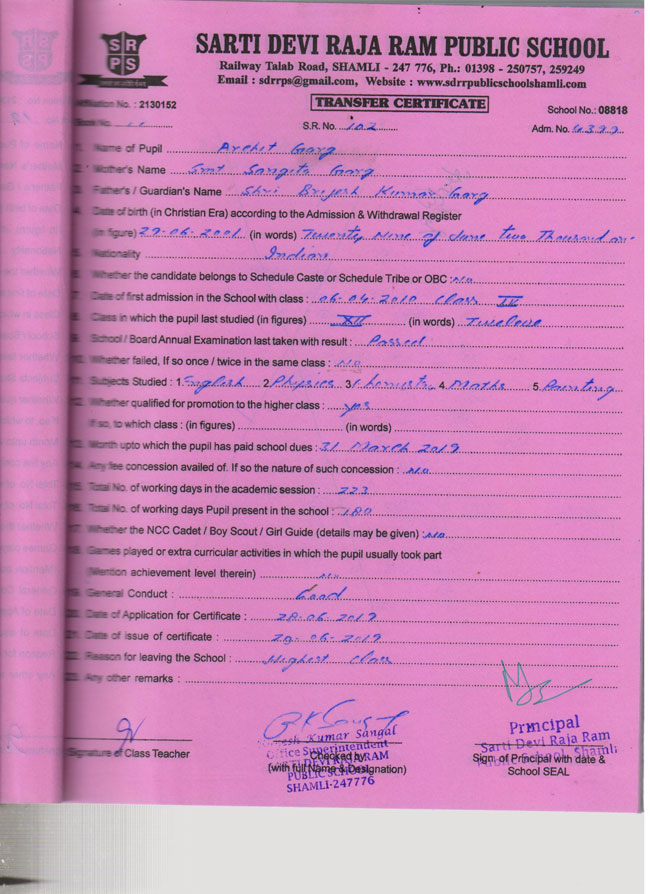 SRPS
SARTI DEVI RAJA RAM PUBLIC SCHOOL
Railway Talab Road, SHAMLI - 247 776, Ph.: 01398 - 250757, 259249
Email : sdrrps@gmail.com, Website : www.sdrrpublicschoolshamli.com
TRANSFER CERTIFICATE
Affiliation No. : 2130152
School No.: 08818
Book No. S.R. No. 102 Adm. No. 4399
1. Name of Pupil Archit Garg
2. Mother's Name Smt Sangita Garg
3. Father's / Guardian's Name Shri Brijesh Kumar Garg
4. Date of birth (in Christian Era) according to the Admission & Withdrawal Register
(in figure) 29.06.2001 (in words) Twenty Nine of June two Thousand one
5. Nationality Indian
6. Whether the candidate belongs to Schedule Caste or Schedule Tribe or OBC : No
7. Date of first admission in the School with class : 06.04.2010 Class
8. Class in which the pupil last studied (in figures) XII (in words) Twelve
9. School / Board Annual Examination last taken with result : Passed
10. Whether failed, If so once / twice in the same class : No
11. Subjects Studied : 1. English 2. Physics 3. Chemistry 4. Maths 5. Painting
12. Whether qualified for promotion to the higher class : yes
If so, to which class : (in figures) (in words)
13. Month upto which the pupil has paid school dues : 31 March 2019
14. Any fee concession availed of. If so the nature of such concession : No
15. Total No. of working days in the academic session : 223
16. Total No. of working days Pupil present in the school : 180
17. Whether the NCC Cadet / Boy Scout / Girl Guide (details may be given) : No
18. Games played or extra curricular activities in which the pupil usually took part
(Mention achievement level therein) No
19. General Conduct : Good
20. Date of Application for Certificate : 28.06.2019
21. Date of issue of certificate : 29.06.2019
22. Reason for leaving the School : Highest Class
23. Any other remarks :
Signature of Class Teacher
Kumar Sangal
Office Superintendent
SARTI DEVI RAJA RAM
PUBLIC SCHOOL
SHAMLI-247776
Checked by
(with full Name & Designation)
Principal
Sarti Devi Raja Ram
Public School, Shamli
Sign. of Principal with date &
School SEAL